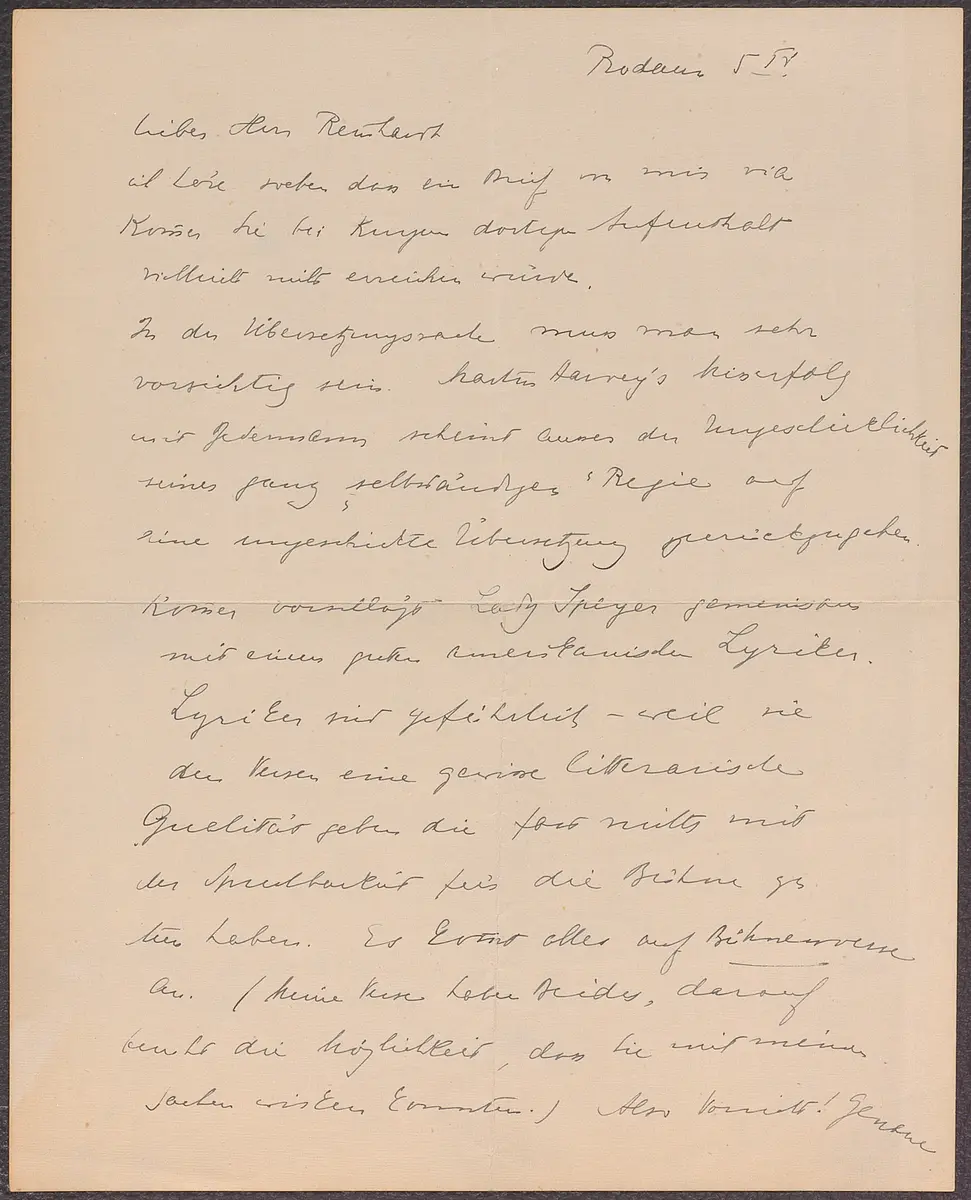 Rodaun 5 IV.
lieber Herr Reinhardt
ich höre soeben dass ein Brief von mir via
Kommer Sie bei Kurzem dortigen Aufenthalt
vielleicht nicht erreichen würde.
In der Übersetzungssache muss man sehr
vorsichtig sein. Martin Harvey's Misserfolg
mit Jedermann scheint ausser der Ungeschicklichkeit
seiner ganz „selbständigen“ Regie auf
eine ungeschickte Übersetzung zurückzugehen.
Kommer vorschlägt Lady Speyer gemeinsam
mit einem guten amerikanischen Lyriker.
Lyriker sind gefährlich – weil sie
den Versen eine gewisse litterarische
Qualität geben die fast nichts mit
der Sprechbarkeit für die Bühne zu
tun haben. Es kommt alles auf Bühnenverse
an. (Meine Verse haben Beides, darauf
beruht die Möglichkeit, dass Sie mit meinen
Sachen wirken konnten.) Also Vorsicht! Genaue